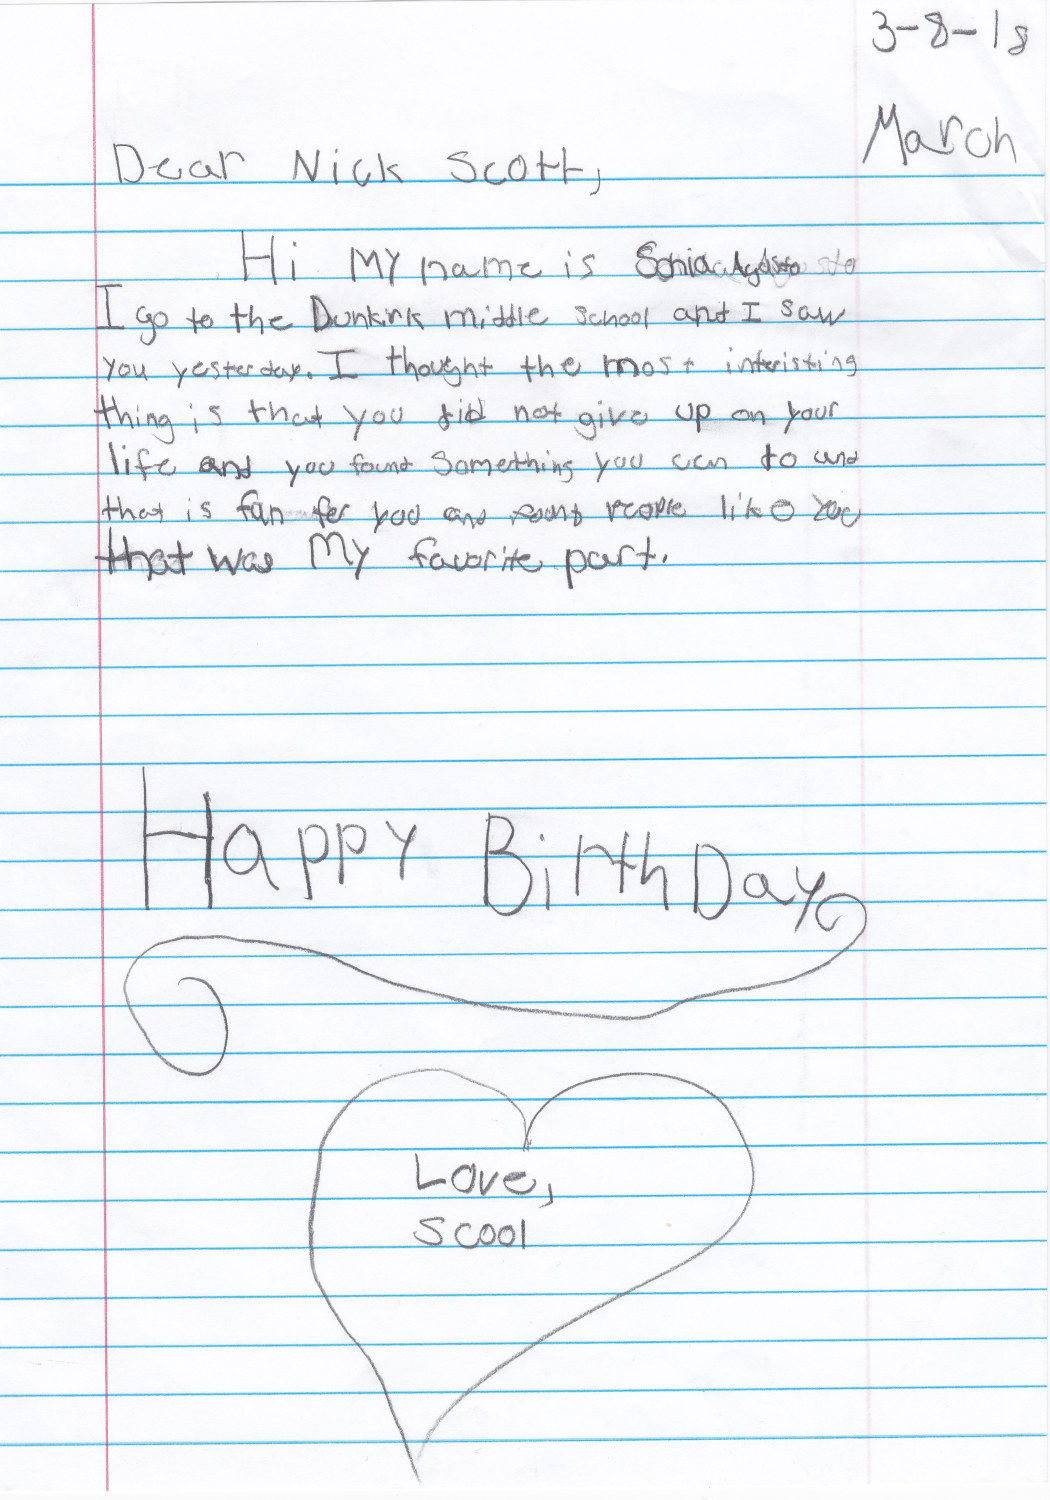 3-8-18
March
Dear Nick Scott,
Hi My name is
I go to the Dunkirk middle school and I saw
you yesterday. I thought the most interisting
thing is that you did not give up on your
life and you found Something you can to and
that is fun for you and found people like you
that was My favorite part.
Happy BirthDay
Love,
Scool